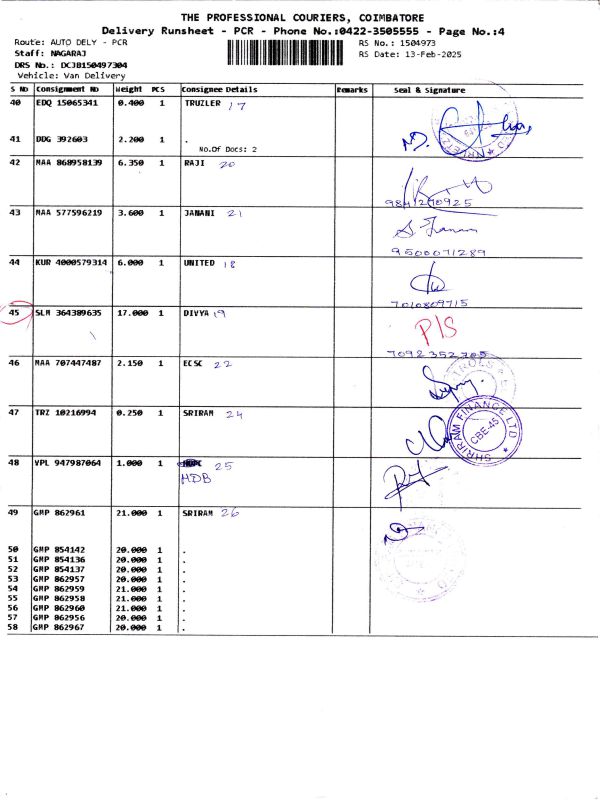 THE PROFESSIONAL COURIERS, COIMBATORE
Delivery Runsheet - PCR - Phone No.:0422-3505555 - Page No.:4
Route: AUTO DELY - PCR RS No.: 1504973
Staff: NAGARAJ RS Date: 13-Feb-2025
DRS No.: DCJB150497304
Vehicle: Van Delivery
S No Consignment No Weight PCS Consignee Details Remarks Seal & Signature
40 EDQ 15065341 0.400 1 TRUZLER 17
41 DDG 392603 2.200 1 .
No.Of Docs: 2
42 MAA 868958139 6.350 1 RAJI 20
9841210925
43 MAA 577596219 3.600 1 JANANI 21
9500071289
44 KUR 4000579314 6.000 1 UNITED 18
7010809715
45 SLM 364389635 17.000 1 DIVYA 19 P/S
7092352705
46 MAA 707447487 2.150 1 ECSC 22
47 TRZ 10216994 0.250 1 SRIRAM 24
SHRIRAM FINANCE LTD
CBE-45
48 VPL 947987064 1.000 1 25
HDB
49 GMP 862961 21.000 1 SRIRAM 26
50 GMP 854142 20.000 1 .
51 GMP 854136 20.000 1 .
52 GMP 854137 20.000 1 .
53 GMP 862957 20.000 1 .
54 GMP 862959 21.000 1 .
55 GMP 862958 21.000 1 .
56 GMP 862960 21.000 1 .
57 GMP 862956 20.000 1 .
58 GMP 862967 20.000 1 .